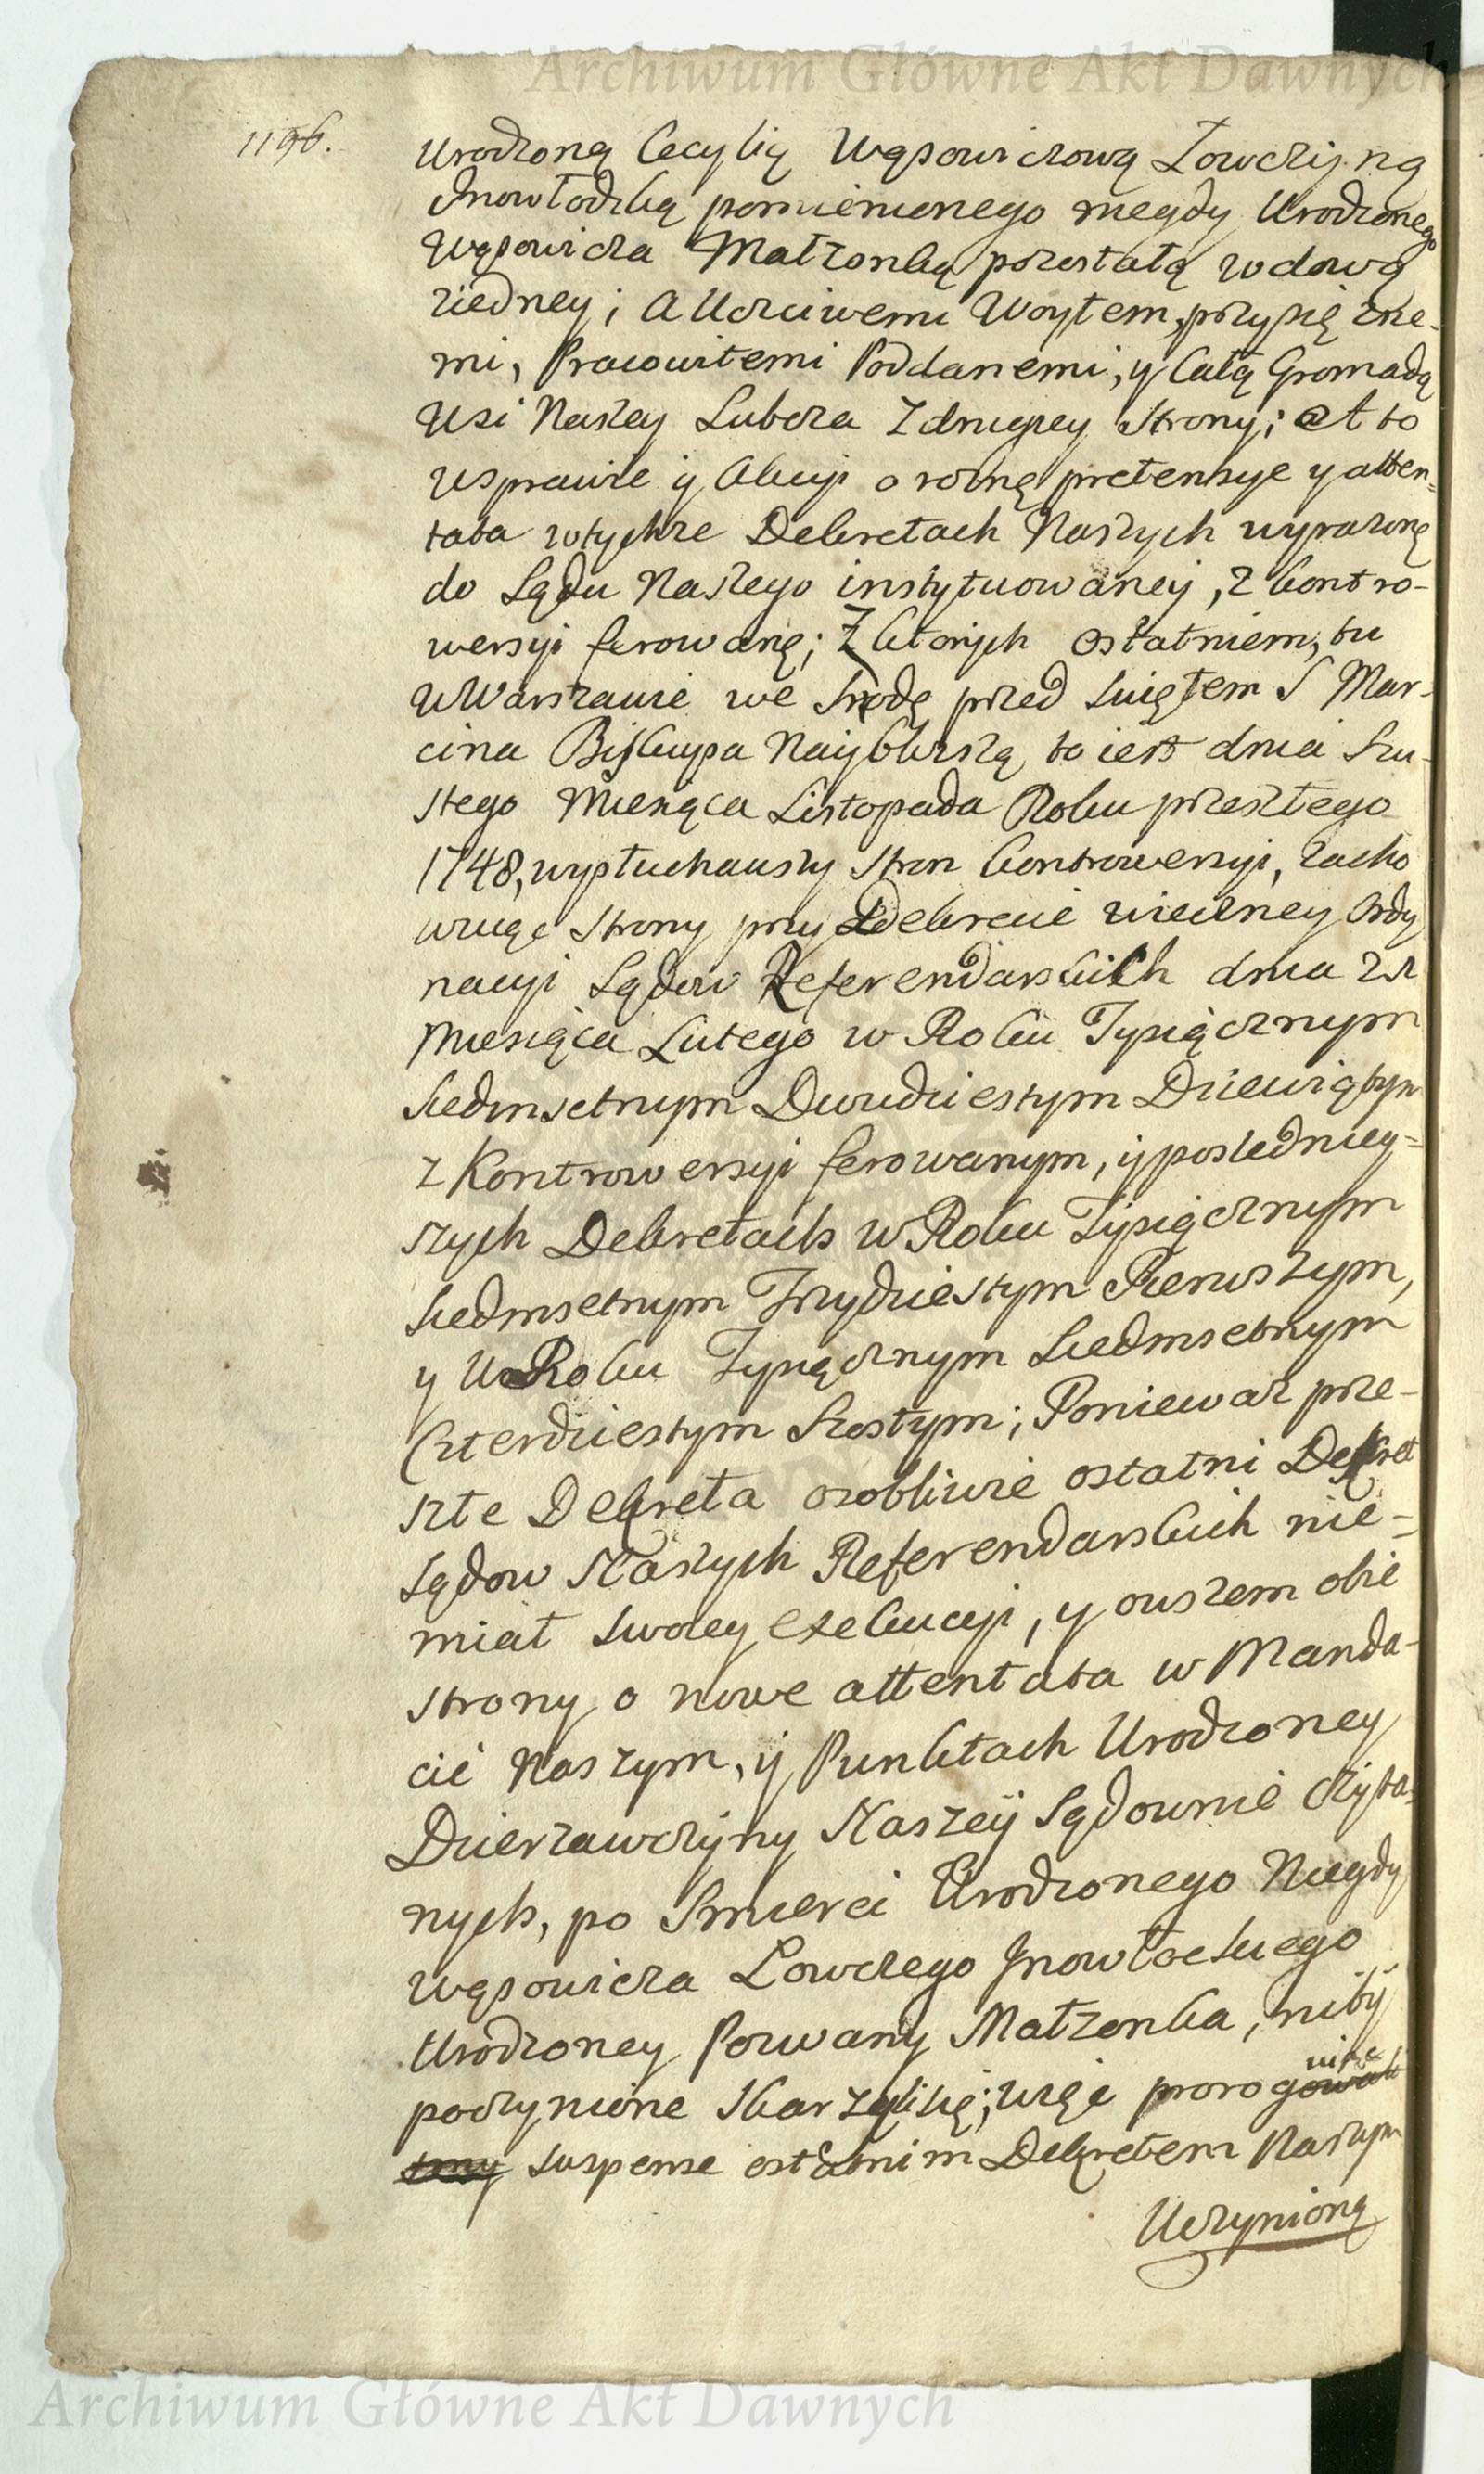 Archiwum Główne Akt Dawnych
1196.
Urodzoną Cecylią Wąsowiczową Łowczyną
Jnowłodzką pomienionego niegdy Urodzonego
Wąsowicza Małżonką pozostałą wdową
ziedney; a Uczciwemi Woytem, przysięzne-
mi, Pracowitemi Poddanemi, y Całą Gromadą
Wsi Naszey Lubcza z drugiey Strony; A to
wsprawie y Akcyi o rożnę pretensye y atten=
tata wtychże Dekretach Naszych wyrażonę
do Sądu Naszego instytuowaney, z kontro-
wersyi ferowanę; Z ktorych ostatniem, tu
w Warszawie we Srzodę przed Swiętem S Mar-
cina Biskupa Nayblizszą, to iest dnia Szu-
stego Miesiąca Listopada Roku przeszłego
1748, wysłuchawszy Stron kontrowersyi, zacho
wuiąc Strony przy Dekrecie wieczney Ordy
nacyi Sądow Referendarskich dnia
Miesiąca Lutego w Roku Tysiącznym
Siedmsetnym Dwudziestym Dziewiątym
z Kontrowersyi ferowanym, y posledniey=
szych Dekretach w Roku Tysiącznym
Siedmsetnym Trzydziestym Pierwszym,
y w Roku Tysiącznym Siedmsetnym
Czterdziestym Szostym; Poniewaz prze-
szłe Dekreta osobliwie ostatni Dekret
Sądow Naszych Referendarskich nie=
miał swoiey exekucyi, y owszem obie
strony o nowe attentata w Manda-
cie Naszym, y Punktach Urodzoney
Dzierzawczyny Naszey Sądownie czyta=
nych, po Smierci Urodzonego Niegdy
Wąsowicza Łowczego Jnowłockiego
Urodzoney Pozwany Małzonka, niby
poczynione Skarzyli się; więc prorogowali
smy suspense ostatnim Dekretem Naszym
Uczynioną
Archiwum Główne Akt Dawnych